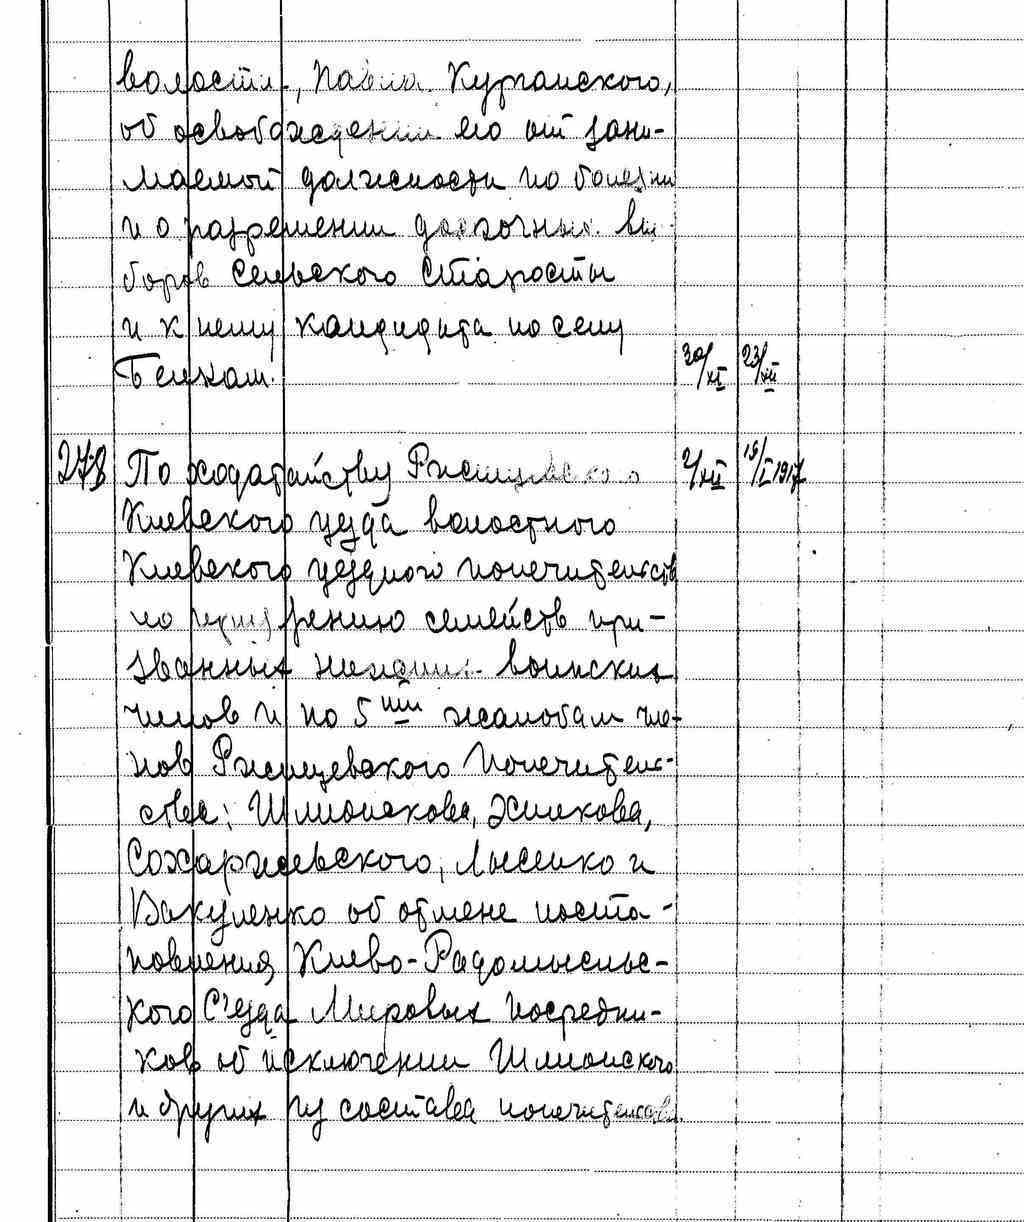 волости, Павла Курпанского,
об освобождении его от зани-
маемой должности по болезни
и о разрешении досрочных вы-
боров сельского старосты
и к нему кандидата по селу
30/XI 23/XII
278 По ходатайству Ржищевского 2/XII 15/I 1917
Киевского уезда волостного
Киевского уездного попечительств
по призрению семейств при-
званных нижних воинских
чинов и по 5ти жалобам чле-
нов Ржищевского Попечитель-
ства: Хилкова,
Сохаржевского, Лысенко и
Вакуленко об отмене поста-
новления Киево-Радомысль-
кого Съезда Мировых Посредни-
ков об исключении
и других из состава попечительства